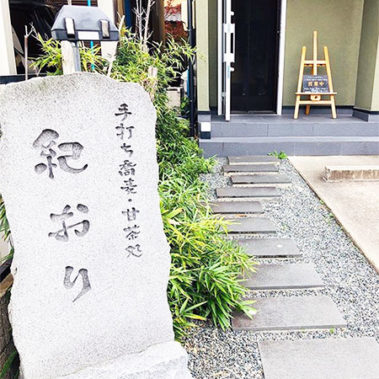 手打ち蕎麦・甘茶処
紀おり